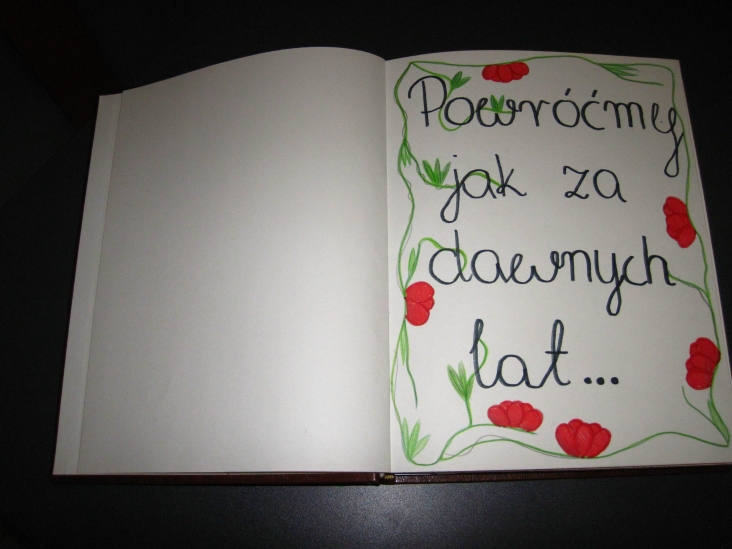 Powróćmy
jak za
dawnych
lat...